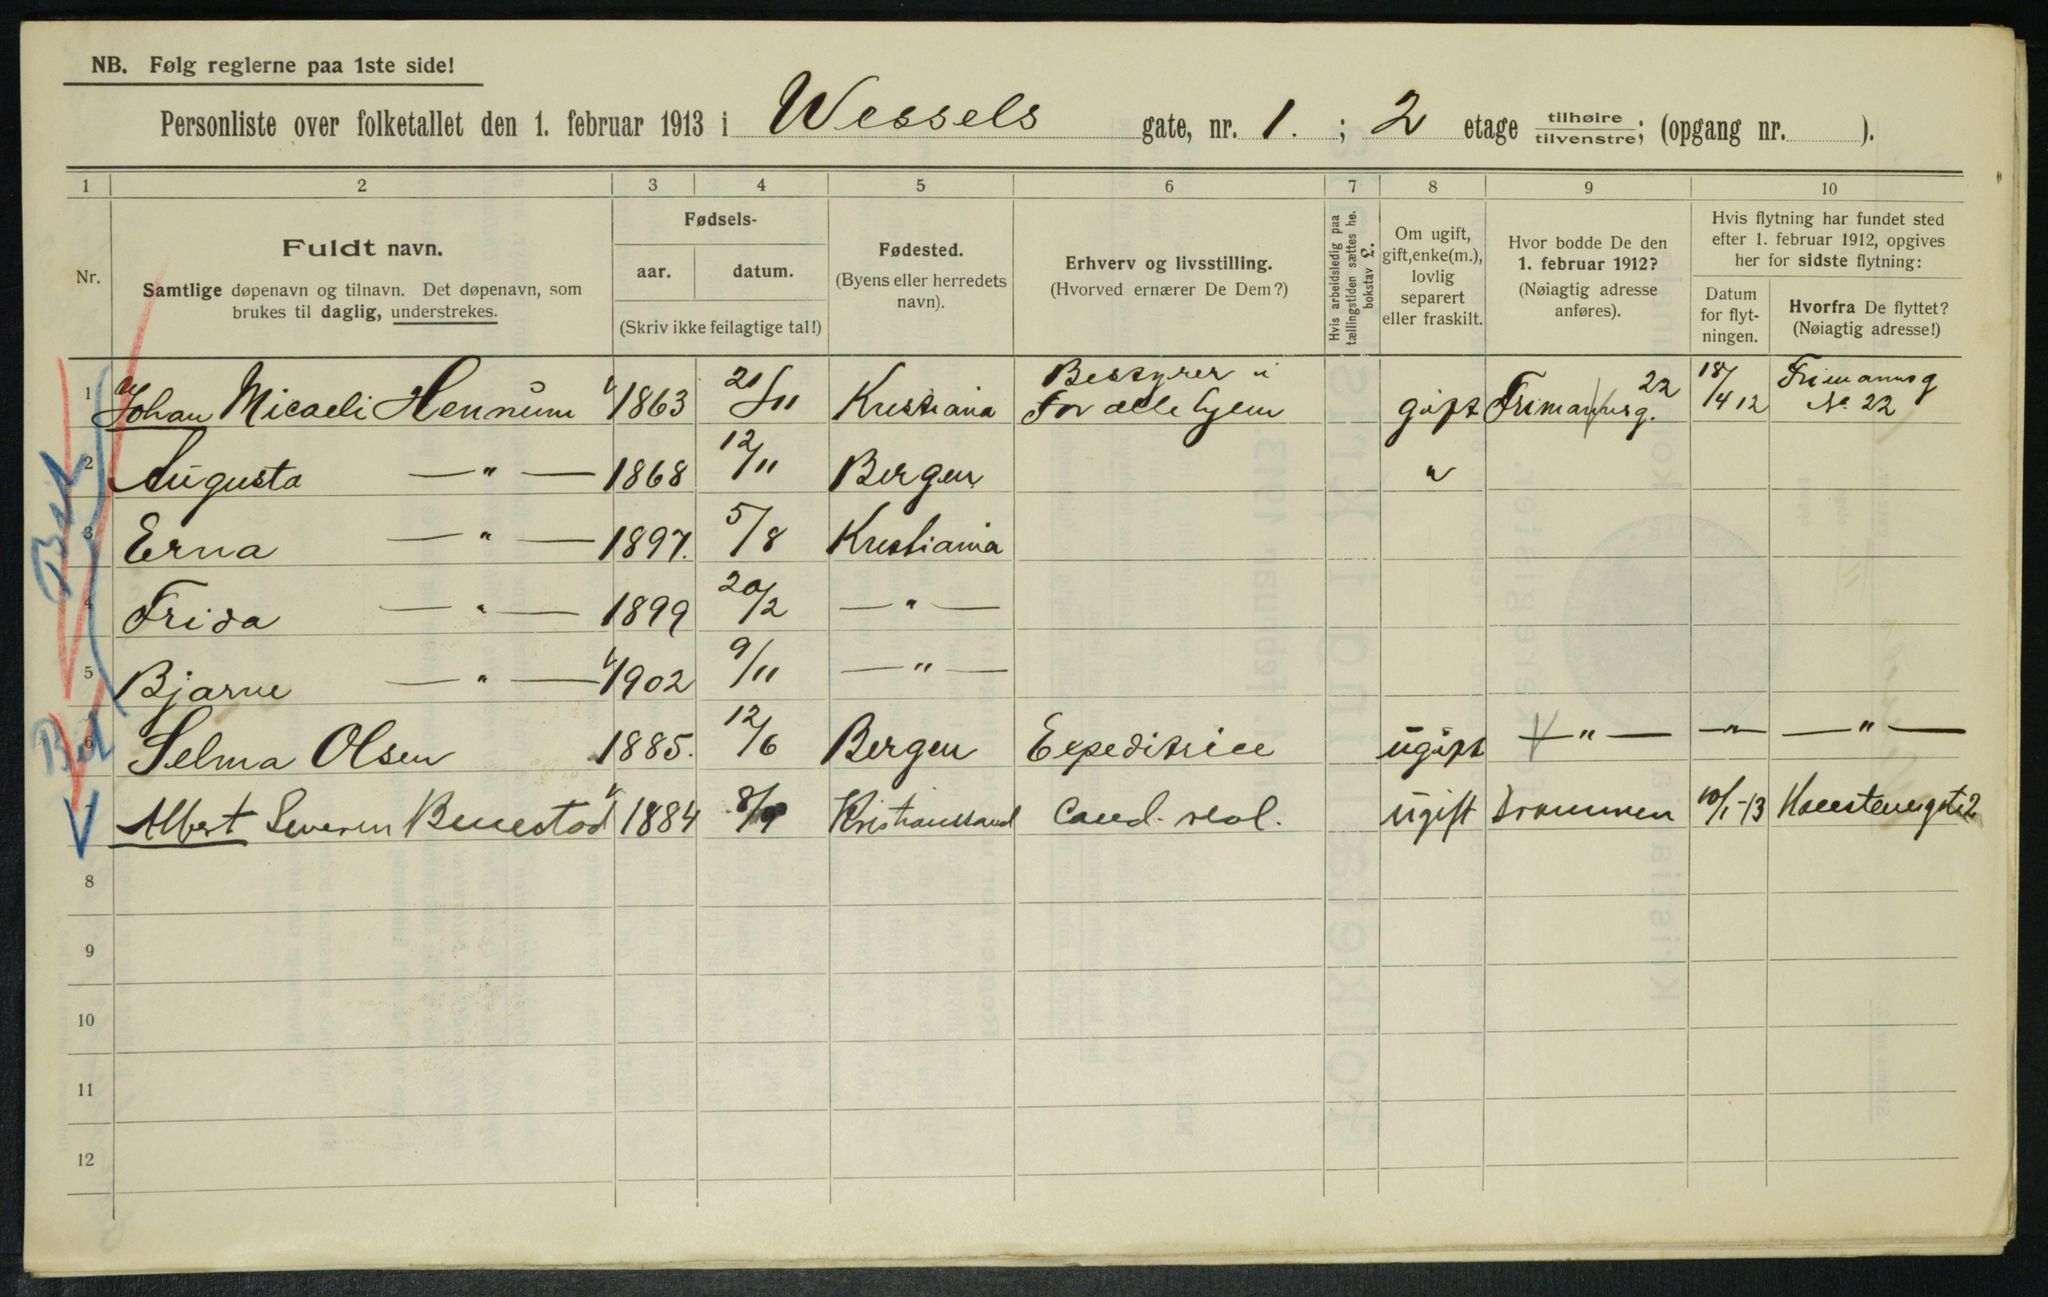 NB. Følg reglerne paa 1ste side!
Personliste over folketallet den 1. februar 1913 i Wessels gate, nr. 1. ; 2 etage tilhøire/tilvenstre; (opgang nr. ).
1 2 3 4 5 6 7 8 9 10
Nr.
Fuldt navn.
Samtlige døpenavn og tilnavn. Det døpenavn, som
brukes til daglig, understrekes.
Fødsels-
aar. datum.
(Skriv ikke feilagtige tal!)
Fødested.
(Byens eller herredets
navn).
Erhverv og livsstilling.
(Hvorved ernærer De Dem?)
Hvis arbeidsledig paa
tællingstiden sættes he.
bokstav £.
Om ugift,
gift, enke(m.),
lovlig
separert
eller fraskilt.
Hvor bodde De den
1. februar 1912?
(Nøiagtig adresse
anføres).
Hvis flytning har fundet sted
efter 1. februar 1912, opgives
her for sidste flytning:
Datum
for flyt-
ningen.
Hvorfra De flyttet?
(Nøiagtig adresse!)
1 Johan Micaeli Hennum 1863 21/11 Kristiania Bestyrer i For alle hjem gift Frimannsg. 22 18/4 12 Frimannsg No 22
2 Augusta — " — 1868 12/11 Bergen "
3 Erna — " — 1897. 5/8 Kristiania
4 Frida — " — 1899 20/2 — " —
5 Bjarne — " — 1902 9/11 — " —
6 Selma Olsen 1885. 12/6 Bergen Expeditrice ugift — " — — " — — " —
7 Albert Severin Benestad 1884 8/9 Kristianssand Cand. real. ugift Drammen 10/1-13
8
9
10
11
12